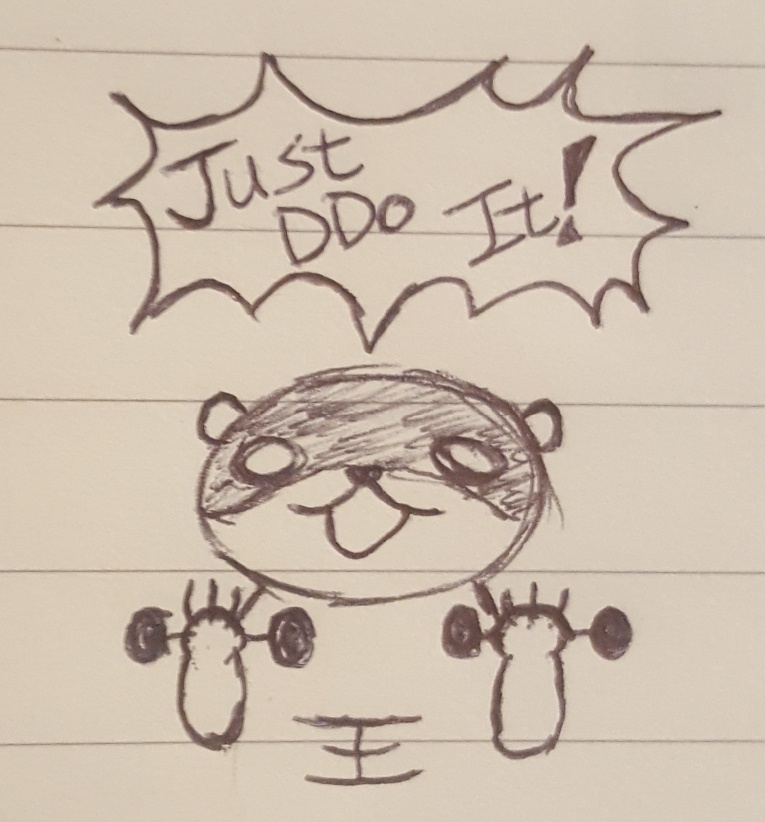 Just
DDo It!
王